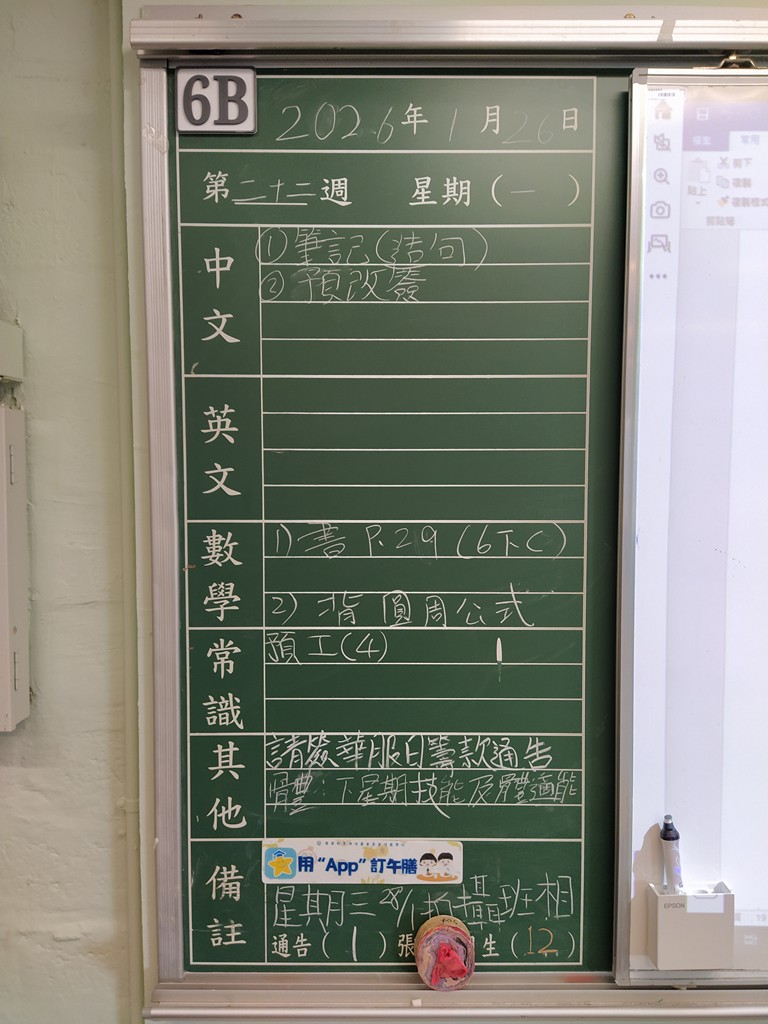 6B
2026年1月26日
第二十二週 星期（一）
中文
①筆記(結句)
②預改簽
英文
數學
1) 書 P.29 (6下C)
2) 背 圓周公式
常識
預工(4)
其他
請簽華服日籌款通告
體豊：下星期技能及體適能
備註
用“App”訂午膳
星期三 28/1拍攝班相
通告（1）張 生（12）
EPSON
剪下
複製
貼上
剪貼簿
常用